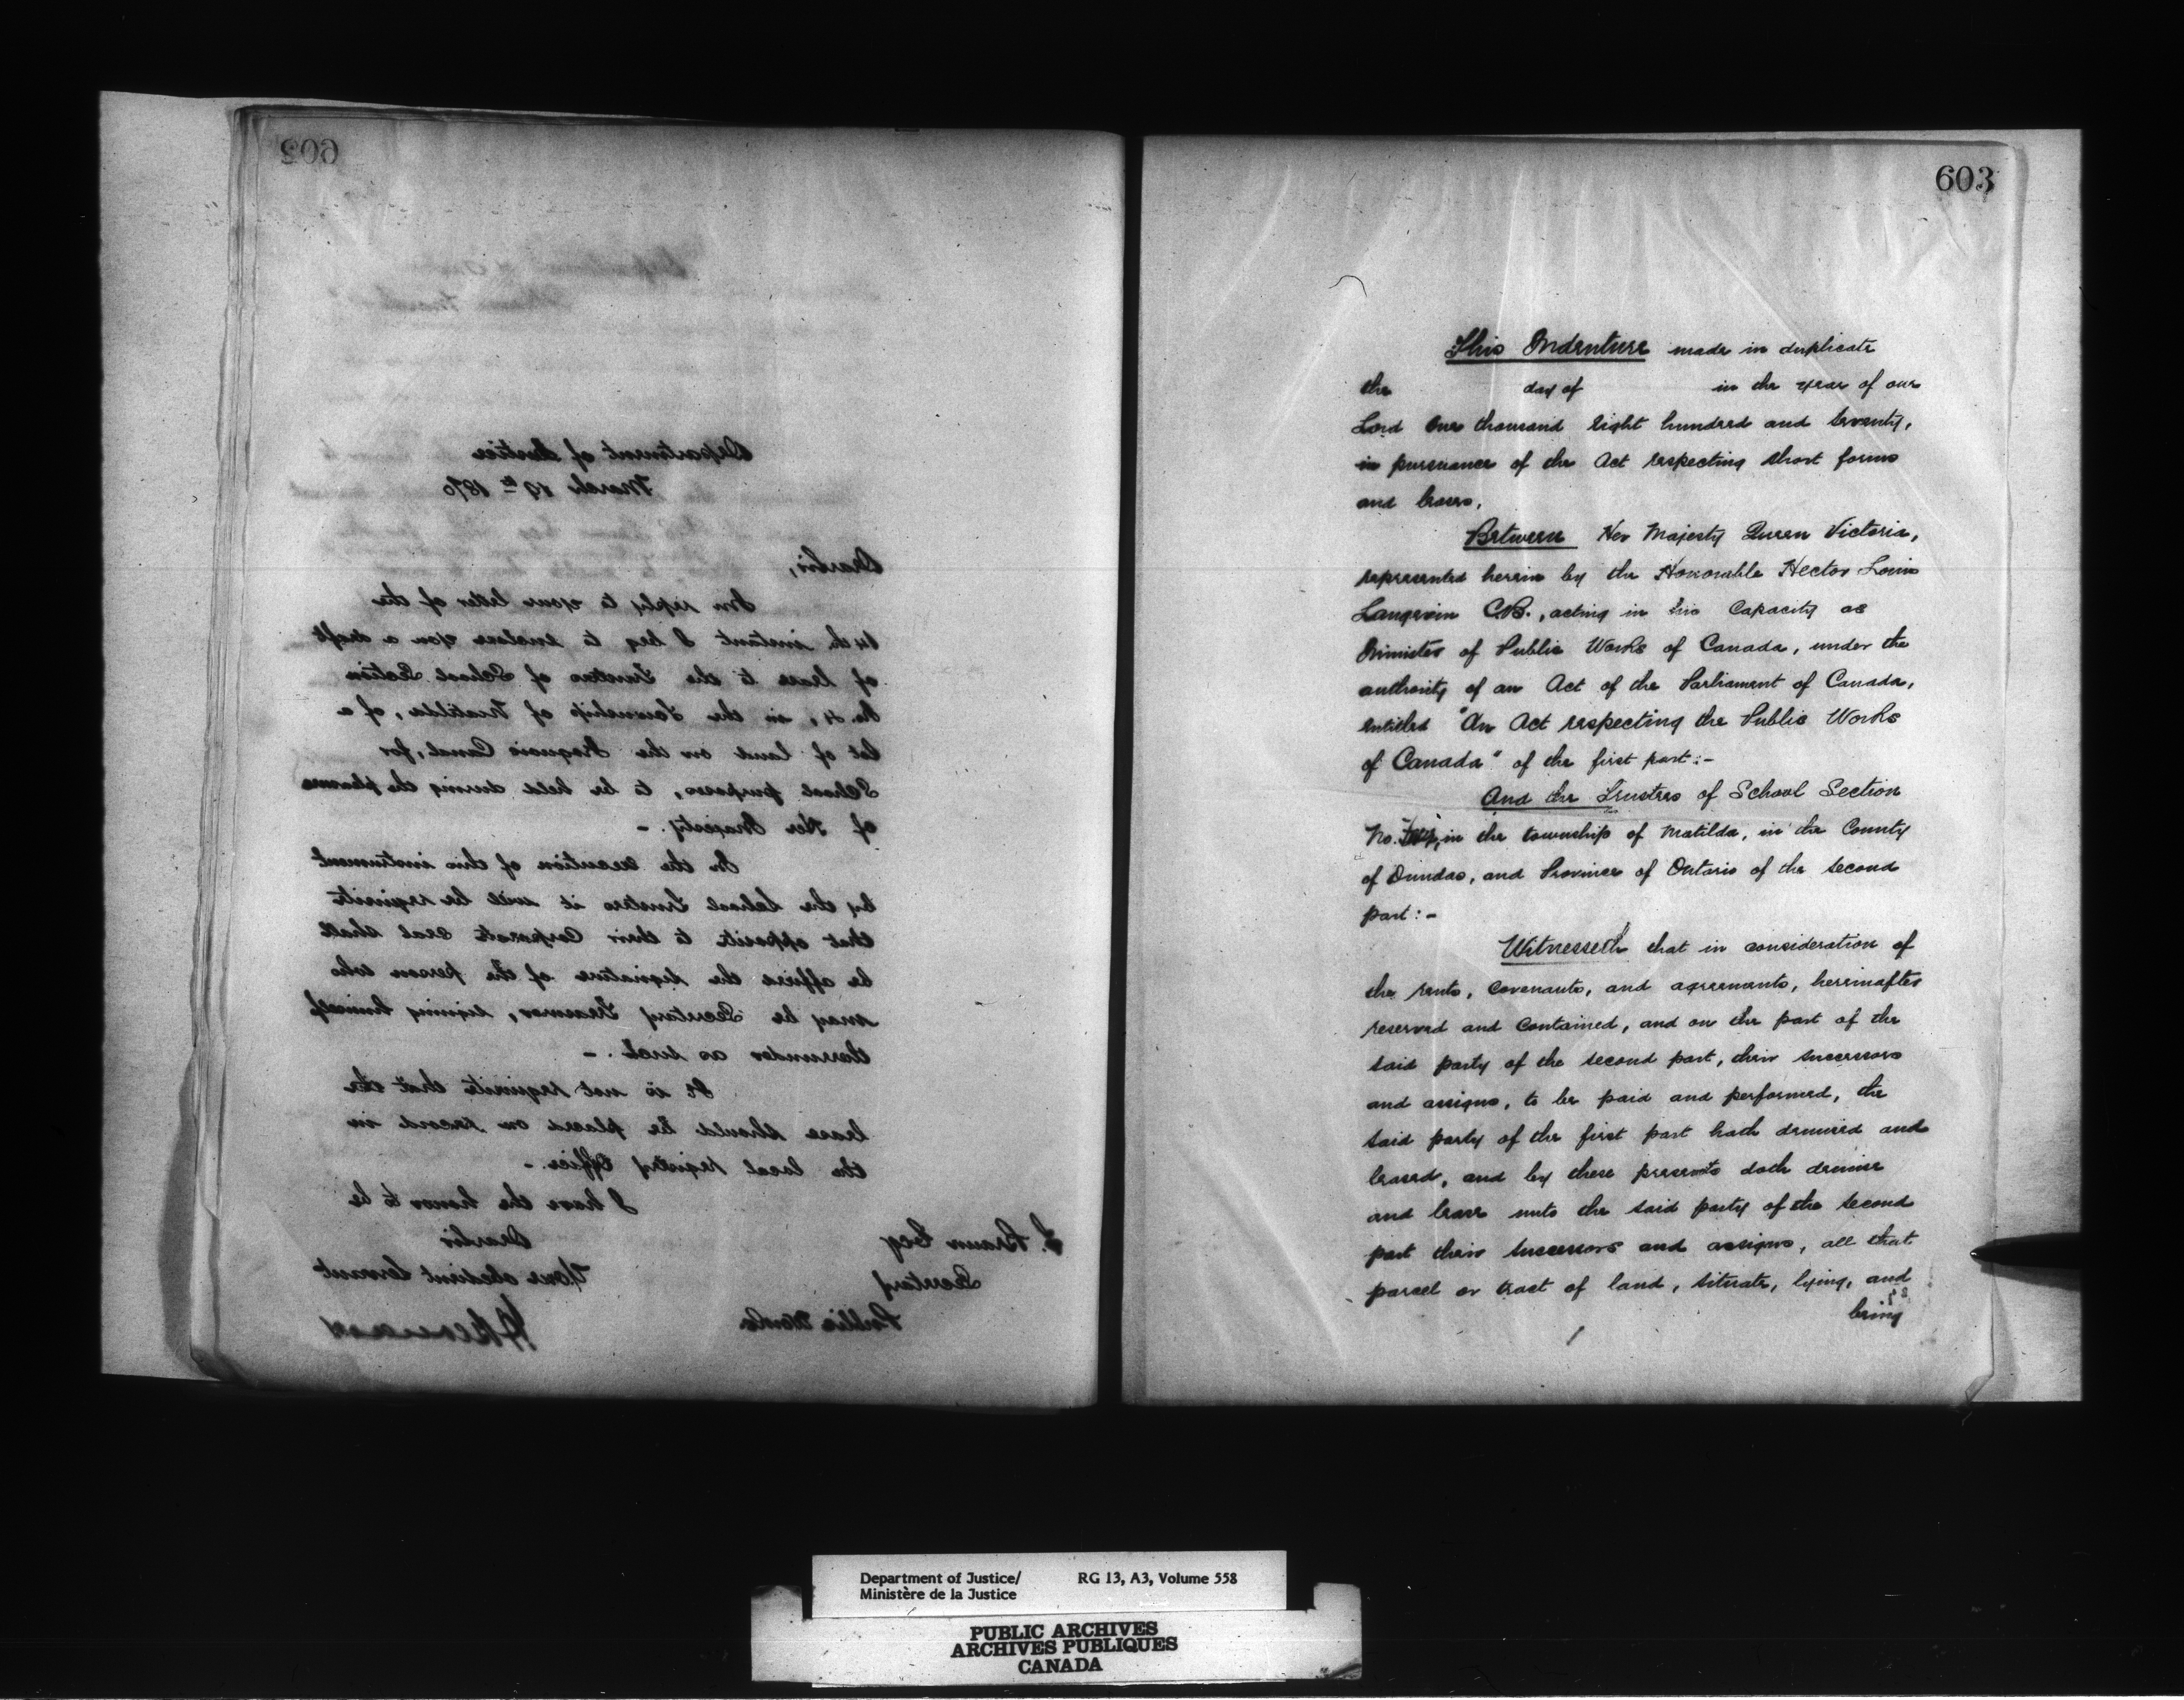 602
Department of Justice
March 19th 1870
Dear Sir,
In reply to your letter of the
14th instant I beg to enclose you a draft
of lease to the Trustees of School Section
No. 4, in the Township of Matilda, of a
lot of land on the Iroquois Canal, for
School purposes, to be held during the pleasure
of Her Majesty. -
In the execution of this instrument
by the School Trustees it will be requisite
that opposite to their Corporate seal shall
be affixed the signature of the person who
may be Secretary Treasurer, signing himself
thereunder as such. -
It is not requisite that the
lease should be placed on record in
the local registry Office. -
I have the honor to be
Dear Sir
Your obedient Servant
F. Braun Esq
Secretary
Public Works
603
This Indenture made in duplicate
the day of in the year of our
Lord One thousand eight hundred and seventy,
in pursuance of the Act respecting short forms
and leases,
Between Her Majesty Queen Victoria,
represented herein by the Honorable Hector Louis
Langevin C.B., acting in his Capacity as
Minister of Public Works of Canada, under the
authority of an Act of the Parliament of Canada,
entitled "An Act respecting the Public Works
of Canada" of the first part:-
And the Trustees of School Section
No. in the township of Matilda, in the County
of Dundas, and Province of Ontario of the second
part:-
Witnesseth that in consideration of
the rents, covenants, and agreements, hereinafter
reserved and contained, and on the part of the
said party of the second part, their successors
and assigns, to be paid and performed, the
said party of the first part hath demised and
leased, and by these presents doth demise
and lease unto the said party of the second
part their successors and assigns, all that
parcel or tract of land, situate, lying, and
being
Department of Justice/ RG 13, A3, Volume 558
Ministère de la Justice
PUBLIC ARCHIVES
ARCHIVES PUBLIQUES
CANADA